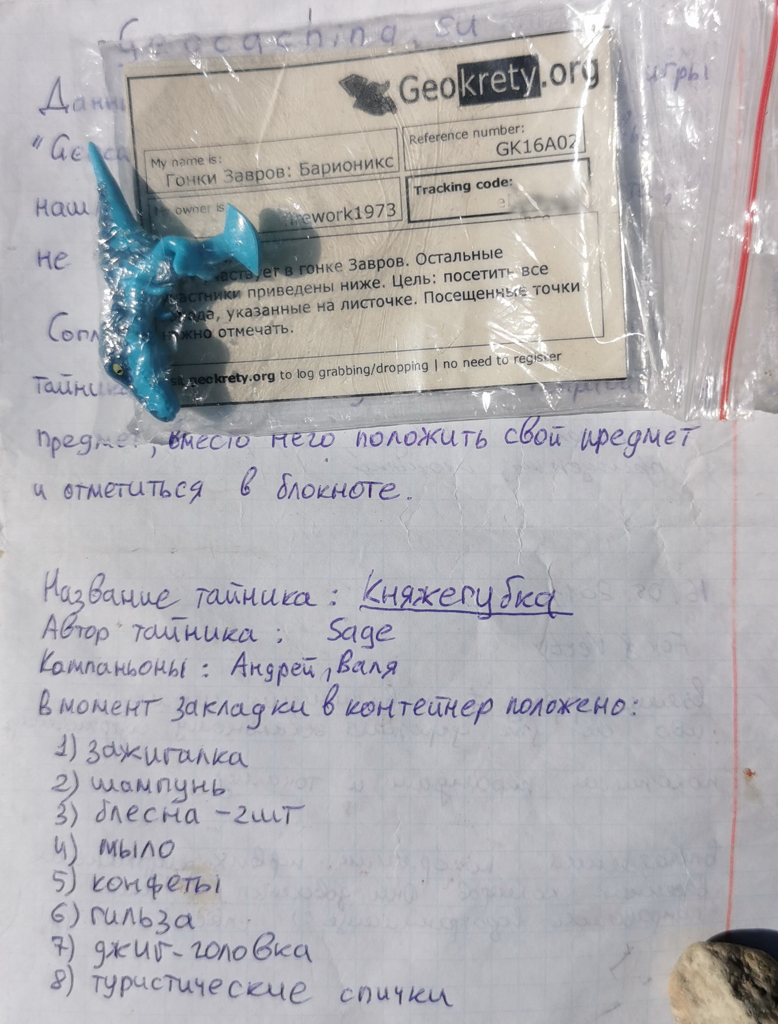 Geocaching.su
игры
наш
не
Geokrety.org
My name is:
Гонки Завров: Барионикс
Reference number:
GK16A02
My owner is
Tracking code:
в гонке Завров. Остальные
приведены ниже. Цель: посетить все
указанные на листочке. Посещенные точки
отмечать.
geokrety.org to log grabbing/dropping | no need to register
вместо него положить свой предмет
и отметиться в блокноте.
Название тайника: Княжегубка
Автор тайника: Sage
Кампаньоны: Андрей, Валя
В момент закладки в контейнер положено:
1) зажигалка
2) шампунь
3) блесна - 2шт
4) мыло
5) конфеты
6) гильза
7) джиг-головка
8) туристические спички